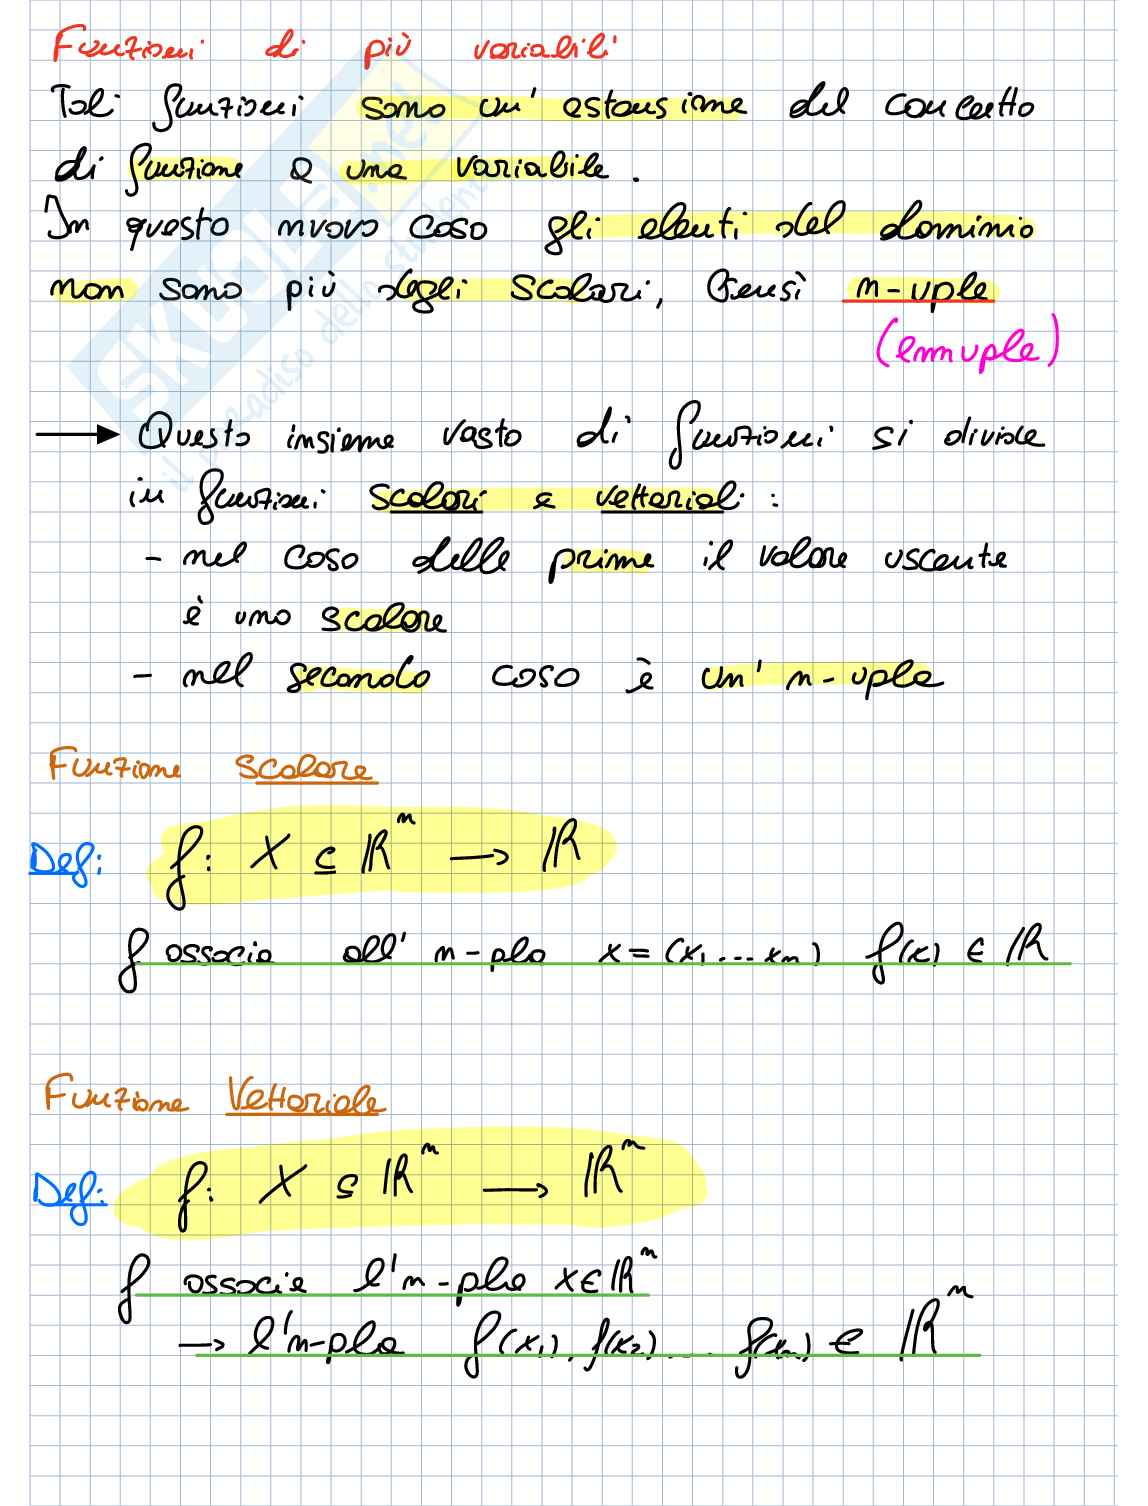 Funzioni di più variabili
Tali funzioni sono un' estensione del concetto
di funzione a una variabile.
In questo nuovo caso gli elenti del dominio
non sono più degli scalari, bensì n-uple
(ennuple)
→ Questo insieme vasto di funzioni si divide
in funzioni scalari e vettoriali:
- nel caso delle prime il valore uscente
è uno scalare
- nel secondo caso è un' n-upla
Funzione Scalare
Def: f: X ⊆ ℝⁿ → ℝ
f associa all' n-pla x = (x₁ ... xₙ) f(x) ∈ ℝ
Funzione Vettoriale
Def: f: X ⊆ ℝⁿ → ℝⁿ
f associa l'n-pla x ∈ ℝⁿ
→ l'n-pla f(x₁), f(x₂) ... f(xₙ) ∈ ℝⁿ
SKUOLA.net
il paradiso dello studente